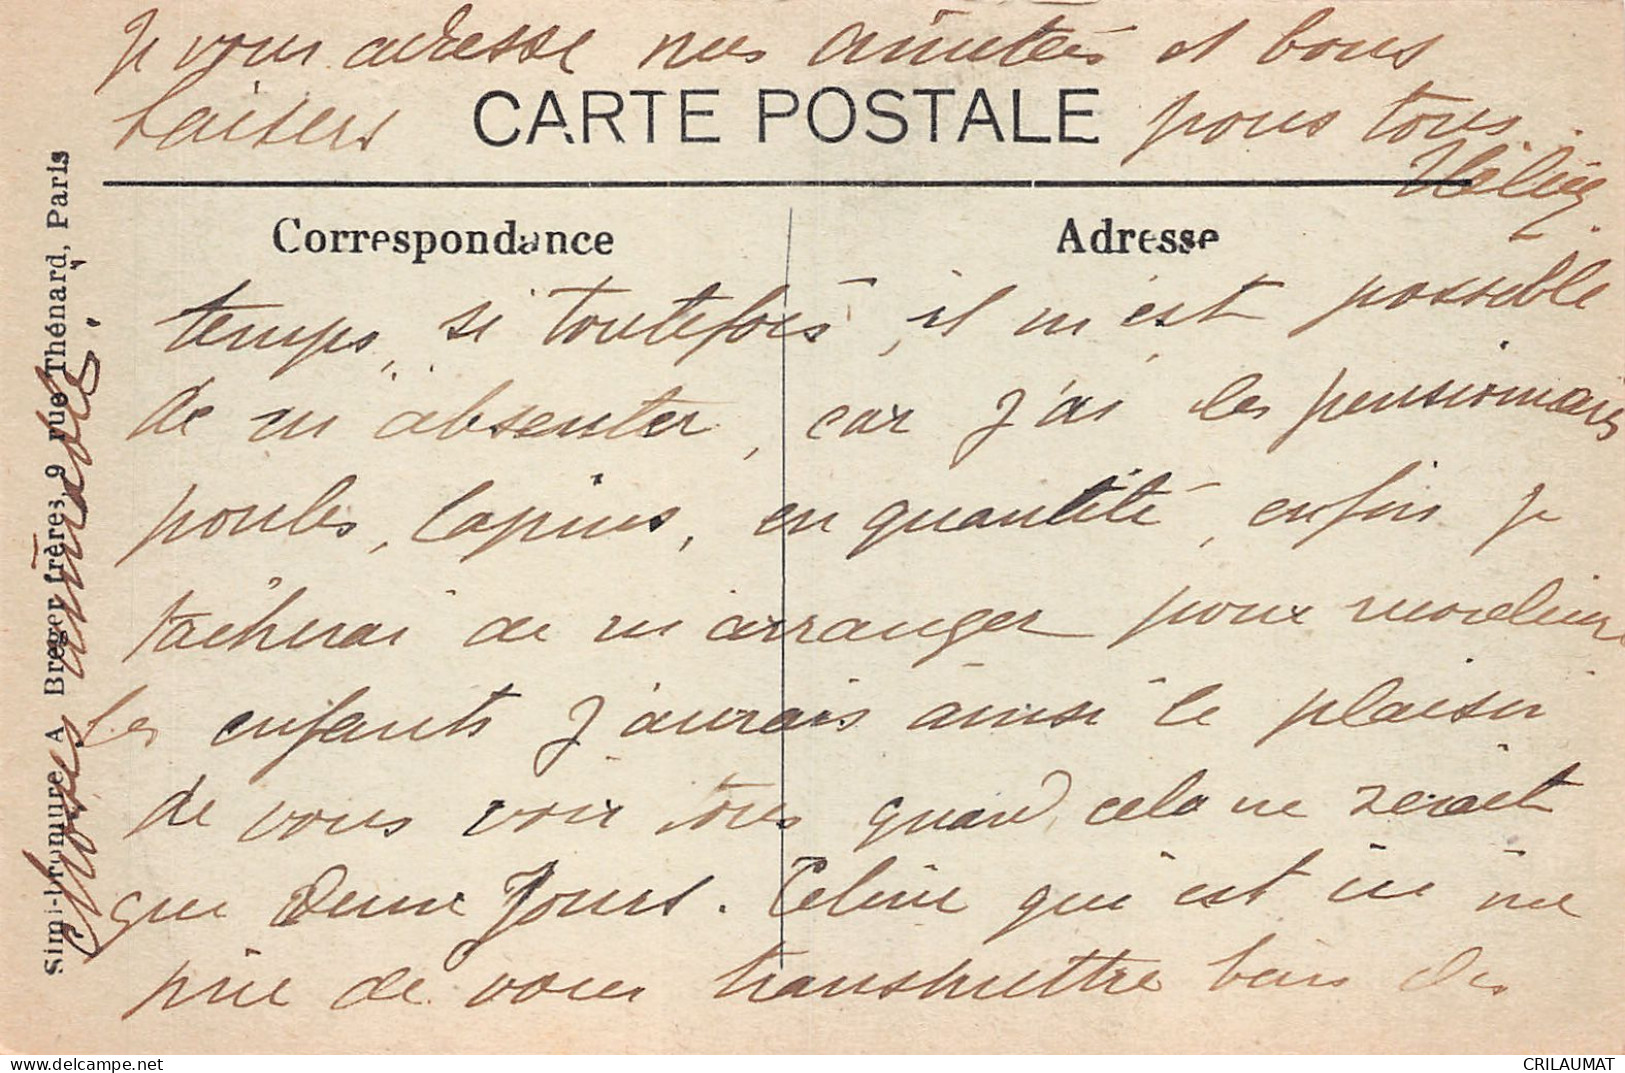 Je vous adresse mes amitiés et bons
baisers pour tous.
CARTE POSTALE
Correspondance
Adresse
temps, si toutefois, il m'est possible
de m'absenter, car j'ai les pensionnaires
poules, lapins, en quantité, enfin je
tacherai de m'arranger pour
les enfants j'aurais ainsi le plaisir
de vous voir tous quand cela ne serait
que deux Jours. Céline qui est ici me
prie de vous transmettre bien des
choses aimables.
Simi-bromure A Breger frères, 9 rue Thénard, Paris
delcampe.net
CRILAUMAT